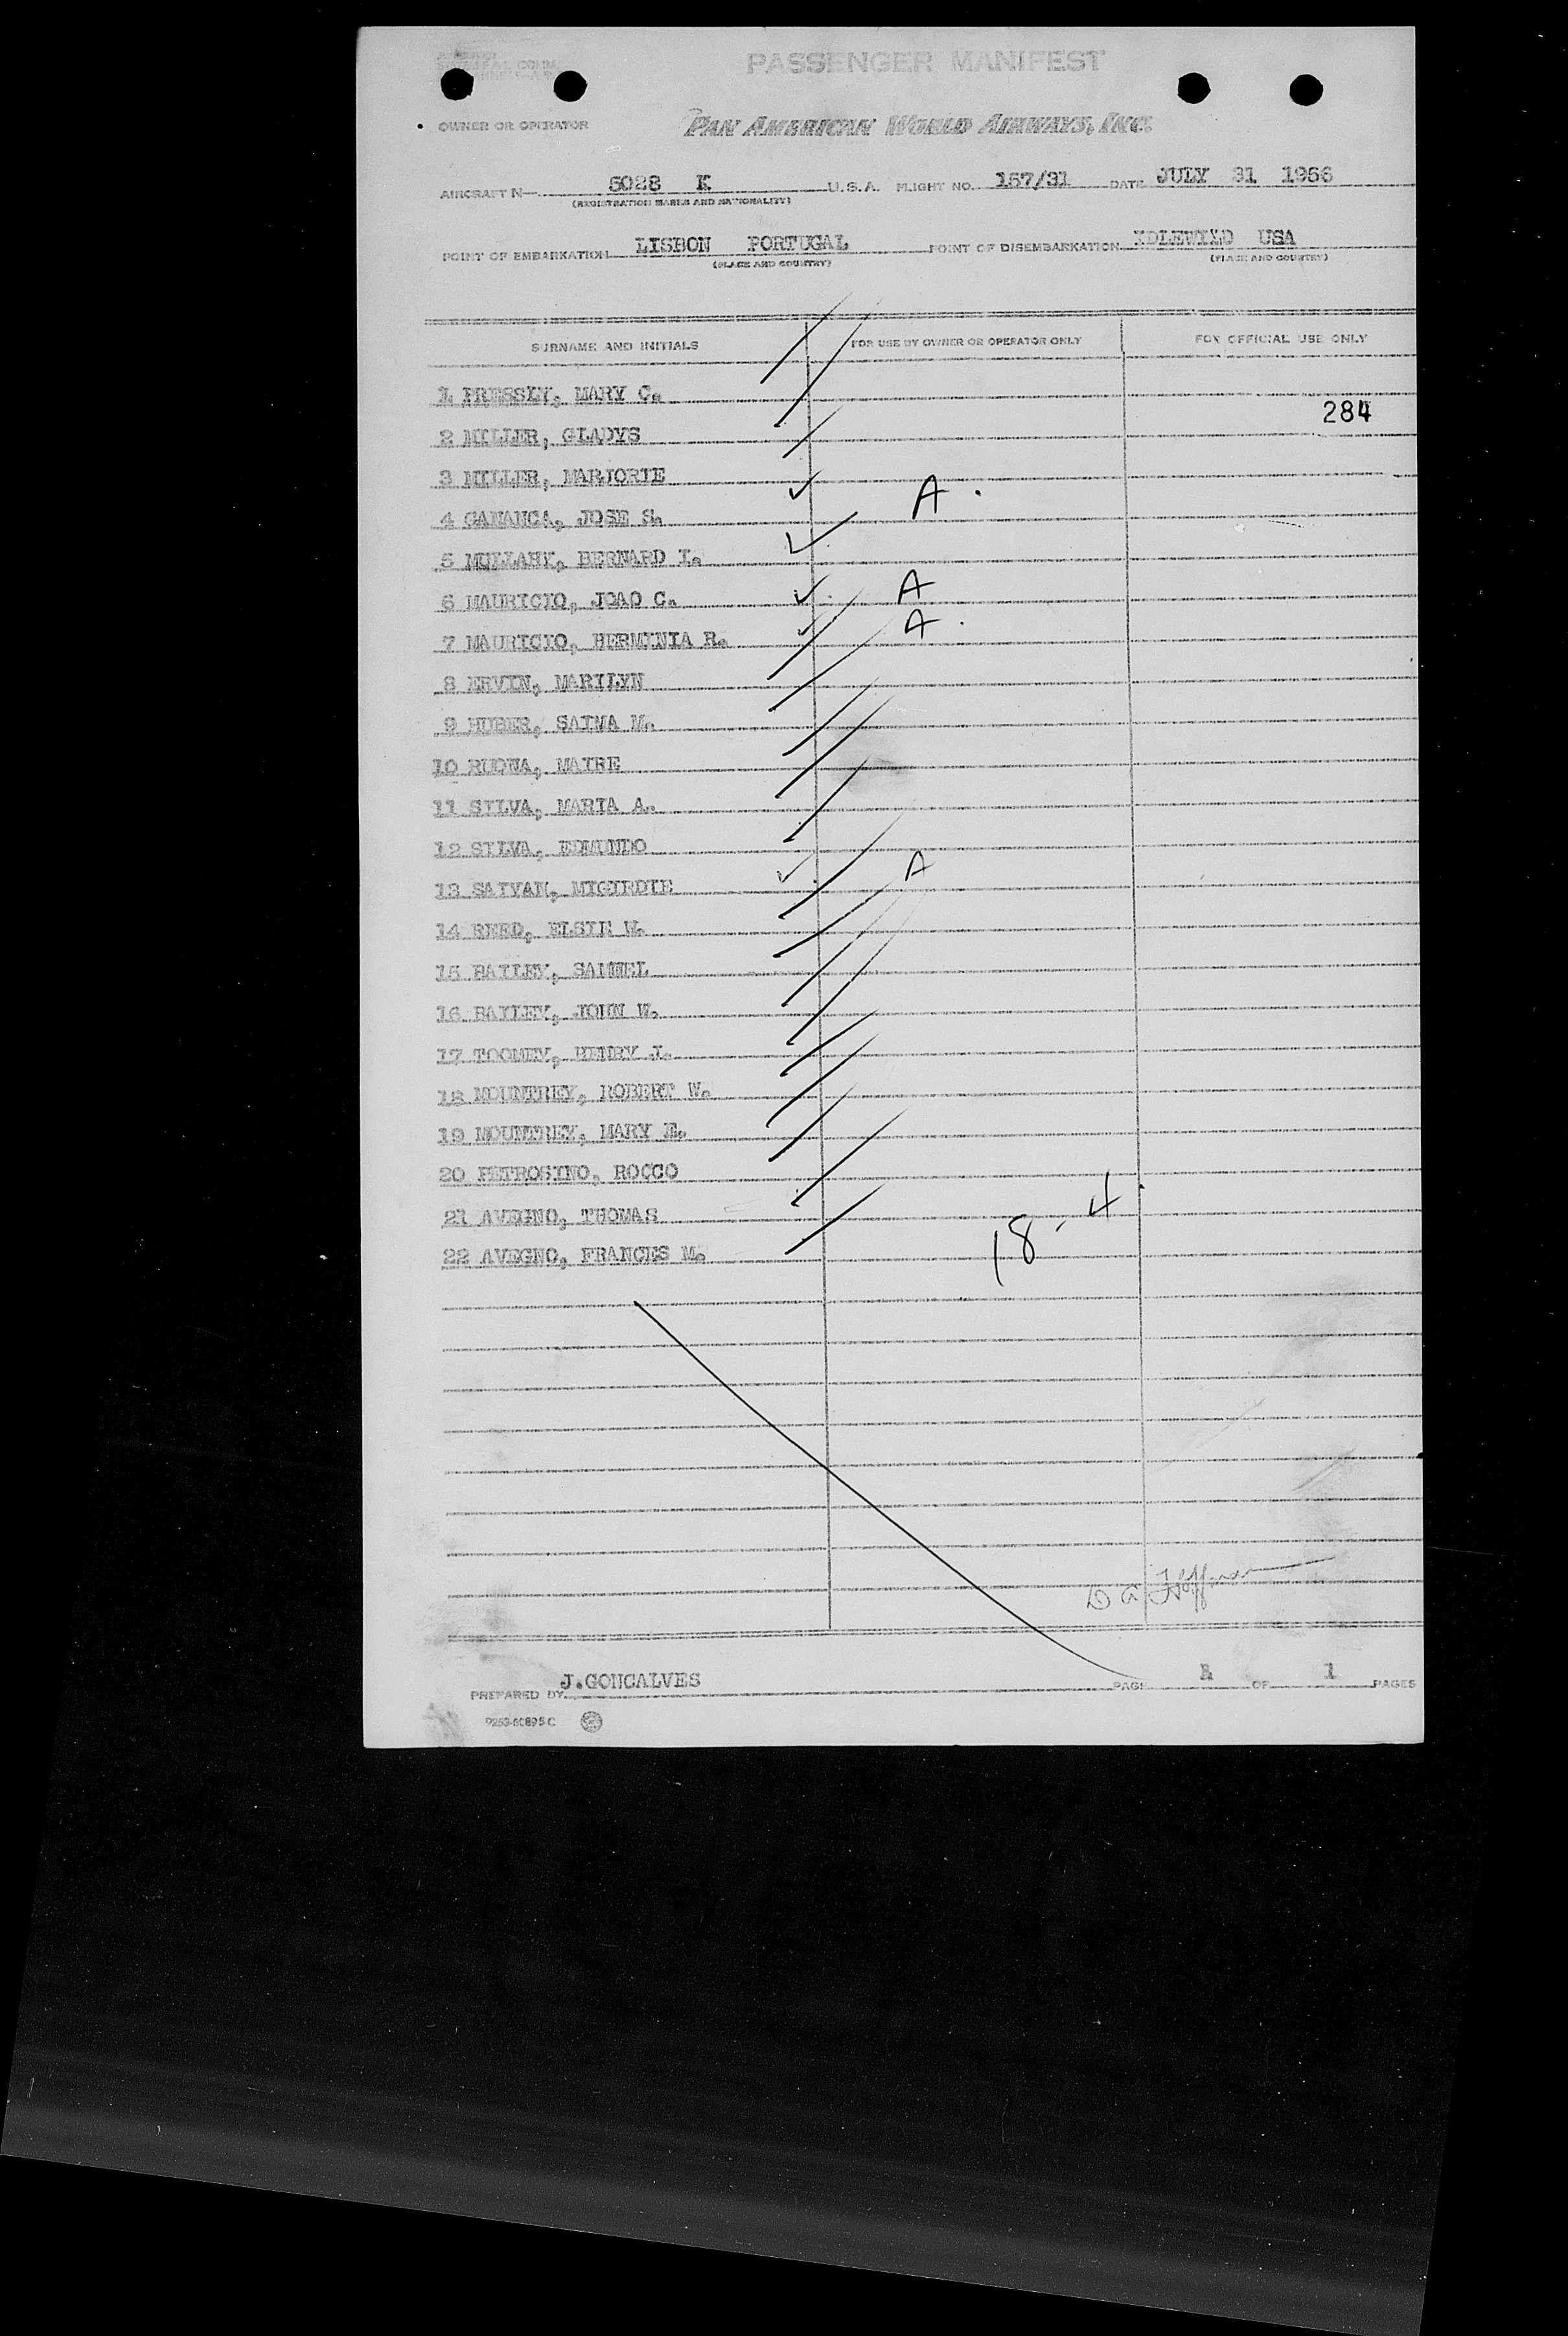 PASSENGER MANIFEST
OWNER OR OPERATOR PAN AMERICAN WORLD AIRWAYS, INC.
AIRCRAFT N— 5028 K U.S.A. FLIGHT NO. 157/31 DATE JULY 31 1956
(REGISTRATION MARKS AND NATIONALITY)
POINT OF EMBARKATION LISBON PORTUGAL POINT OF DISEMBARKATION IDLEWILD USA
(PLACE AND COUNTRY) (PLACE AND COUNTRY)
SURNAME AND INITIALS FOR USE BY OWNER OR OPERATOR ONLY FOR OFFICIAL USE ONLY
1. PRESSLY, MARY C.
284
2 MILLER, GLADYS
3 MILLER, MARJORIE
4 GANANCA, JOSE S. A.
5 MULLAHY, BERNARD I.
6 MAURICIO, JOAO C. A
7 MAURICIO, HERMINIA R. A.
8 ERVIN, MARILYN
9 HUBER, SAIMA M.
10 RUONA, MAIRE
11 SILVA, MARIA A.
12 SILVA, EDMUNDO
13 SAIVAN, MIGIRDIE A
14 REED, ELSIE W.
15 BAILEY, SAMUEL
16 BAILEY, JOHN W.
17 TOOMEY, HENRY J.
18 MOUNTREY, ROBERT W.
19 MOUNTREY, MARY E.
20 PETROSINO, ROCCO
21 AVEGNO, THOMAS
18-4
22 AVEGNO, FRANCES M.
D G Hoffman
PREPARED BY J.GONCALVES PAGE 1 OF 1 PAGES